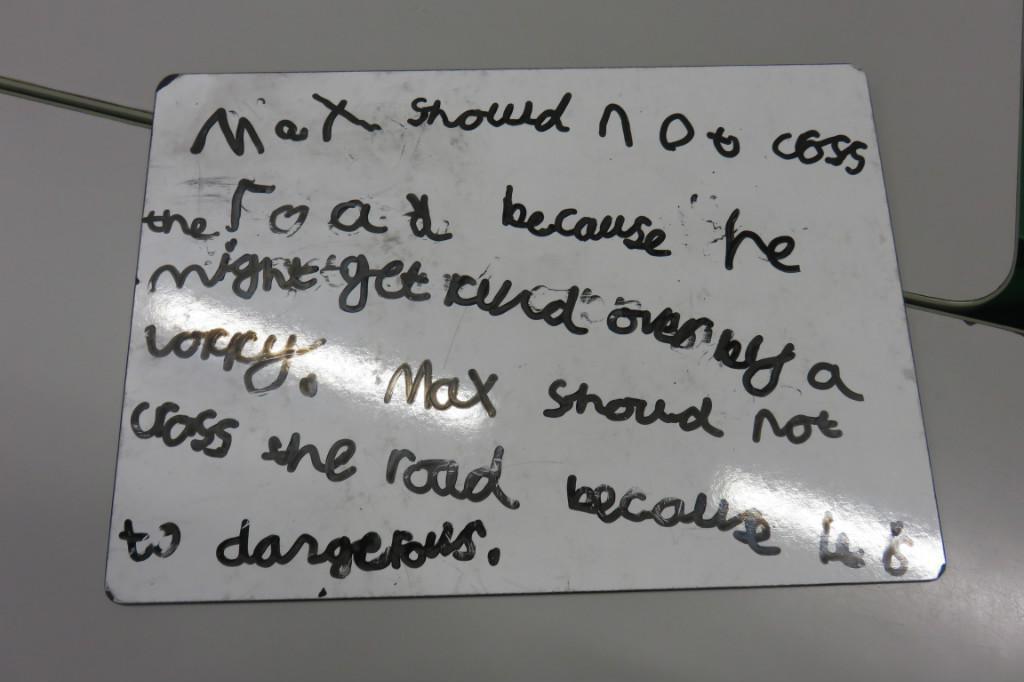 Max should not coss
the road because he
might get rund over by a
lorry. Max should not
cross the road because it is
to dangerous.